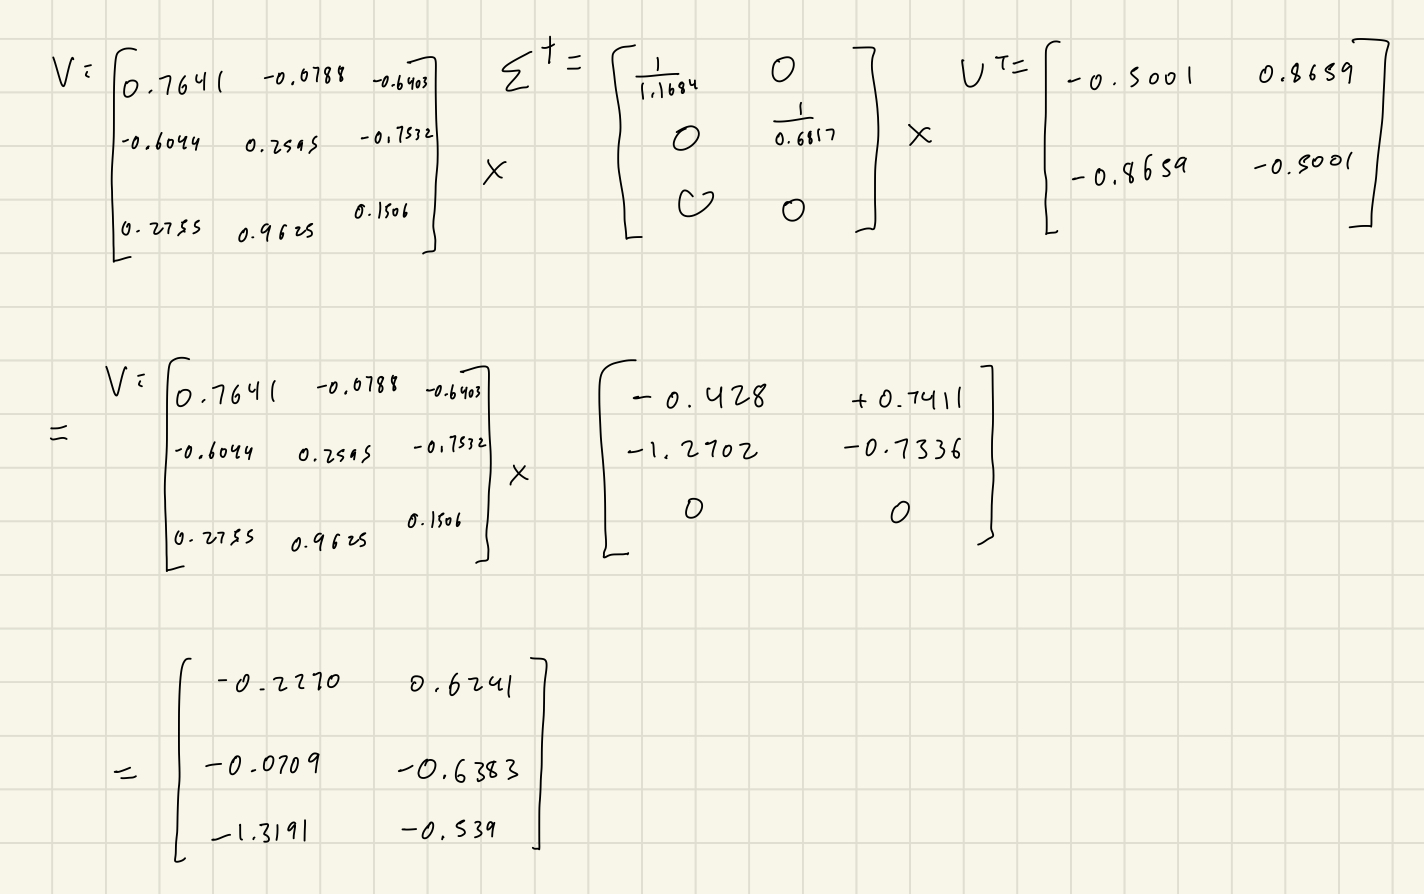 V = [ 0.7641 -0.0788 -0.6403 ; -0.6044 0.2595 -0.7532 ; 0.2755 0.9625 0.1506 ] × Σ† = [ 1/1.1684 0 ; 0 1/0.6817 ; 0 0 ] × Uᵀ = [ -0.5001 0.8659 ; -0.8659 -0.5001 ]
= V = [ 0.7641 -0.0788 -0.6403 ; -0.6044 0.2595 -0.7532 ; 0.2755 0.9625 0.1506 ] × [ -0.428 +0.7411 ; -1.2702 -0.7336 ; 0 0 ]
= [ -0.2270 0.6241 ; -0.0709 -0.6383 ; -1.3191 -0.539 ]